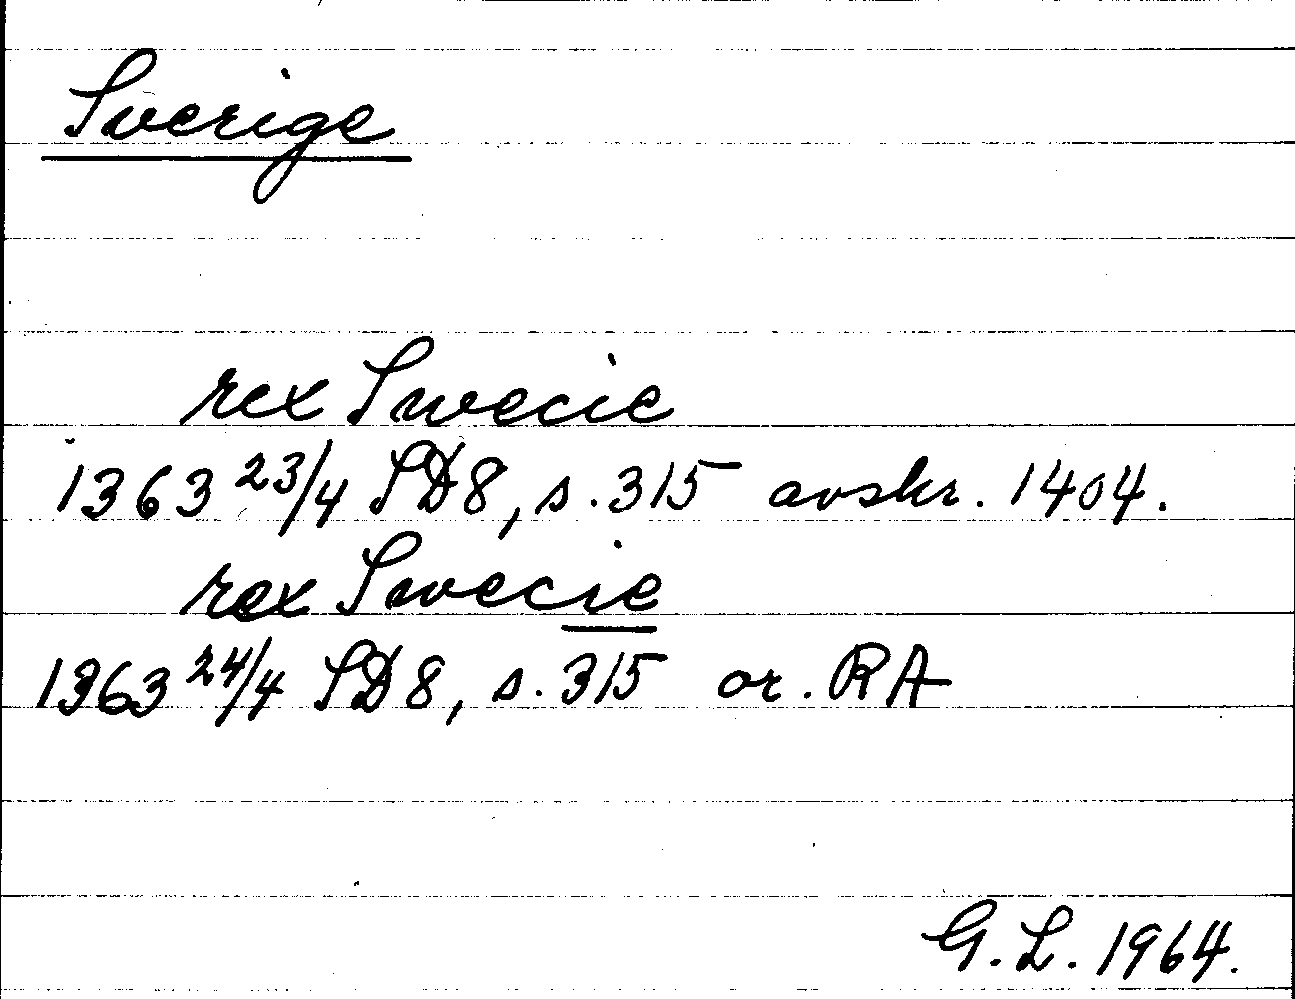 Sverige
rex Swecie
1363 23/4 SD8, s. 315 avskr. 1404.
rex Swecie
1363 24/4 SD8, s. 315 or. RA
G. L. 1964.